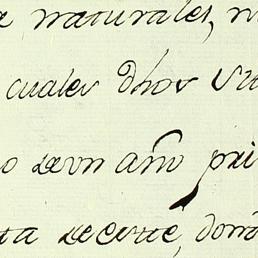 a naturales, n
cuales dhos su
o de un año pri
ta de corte, don